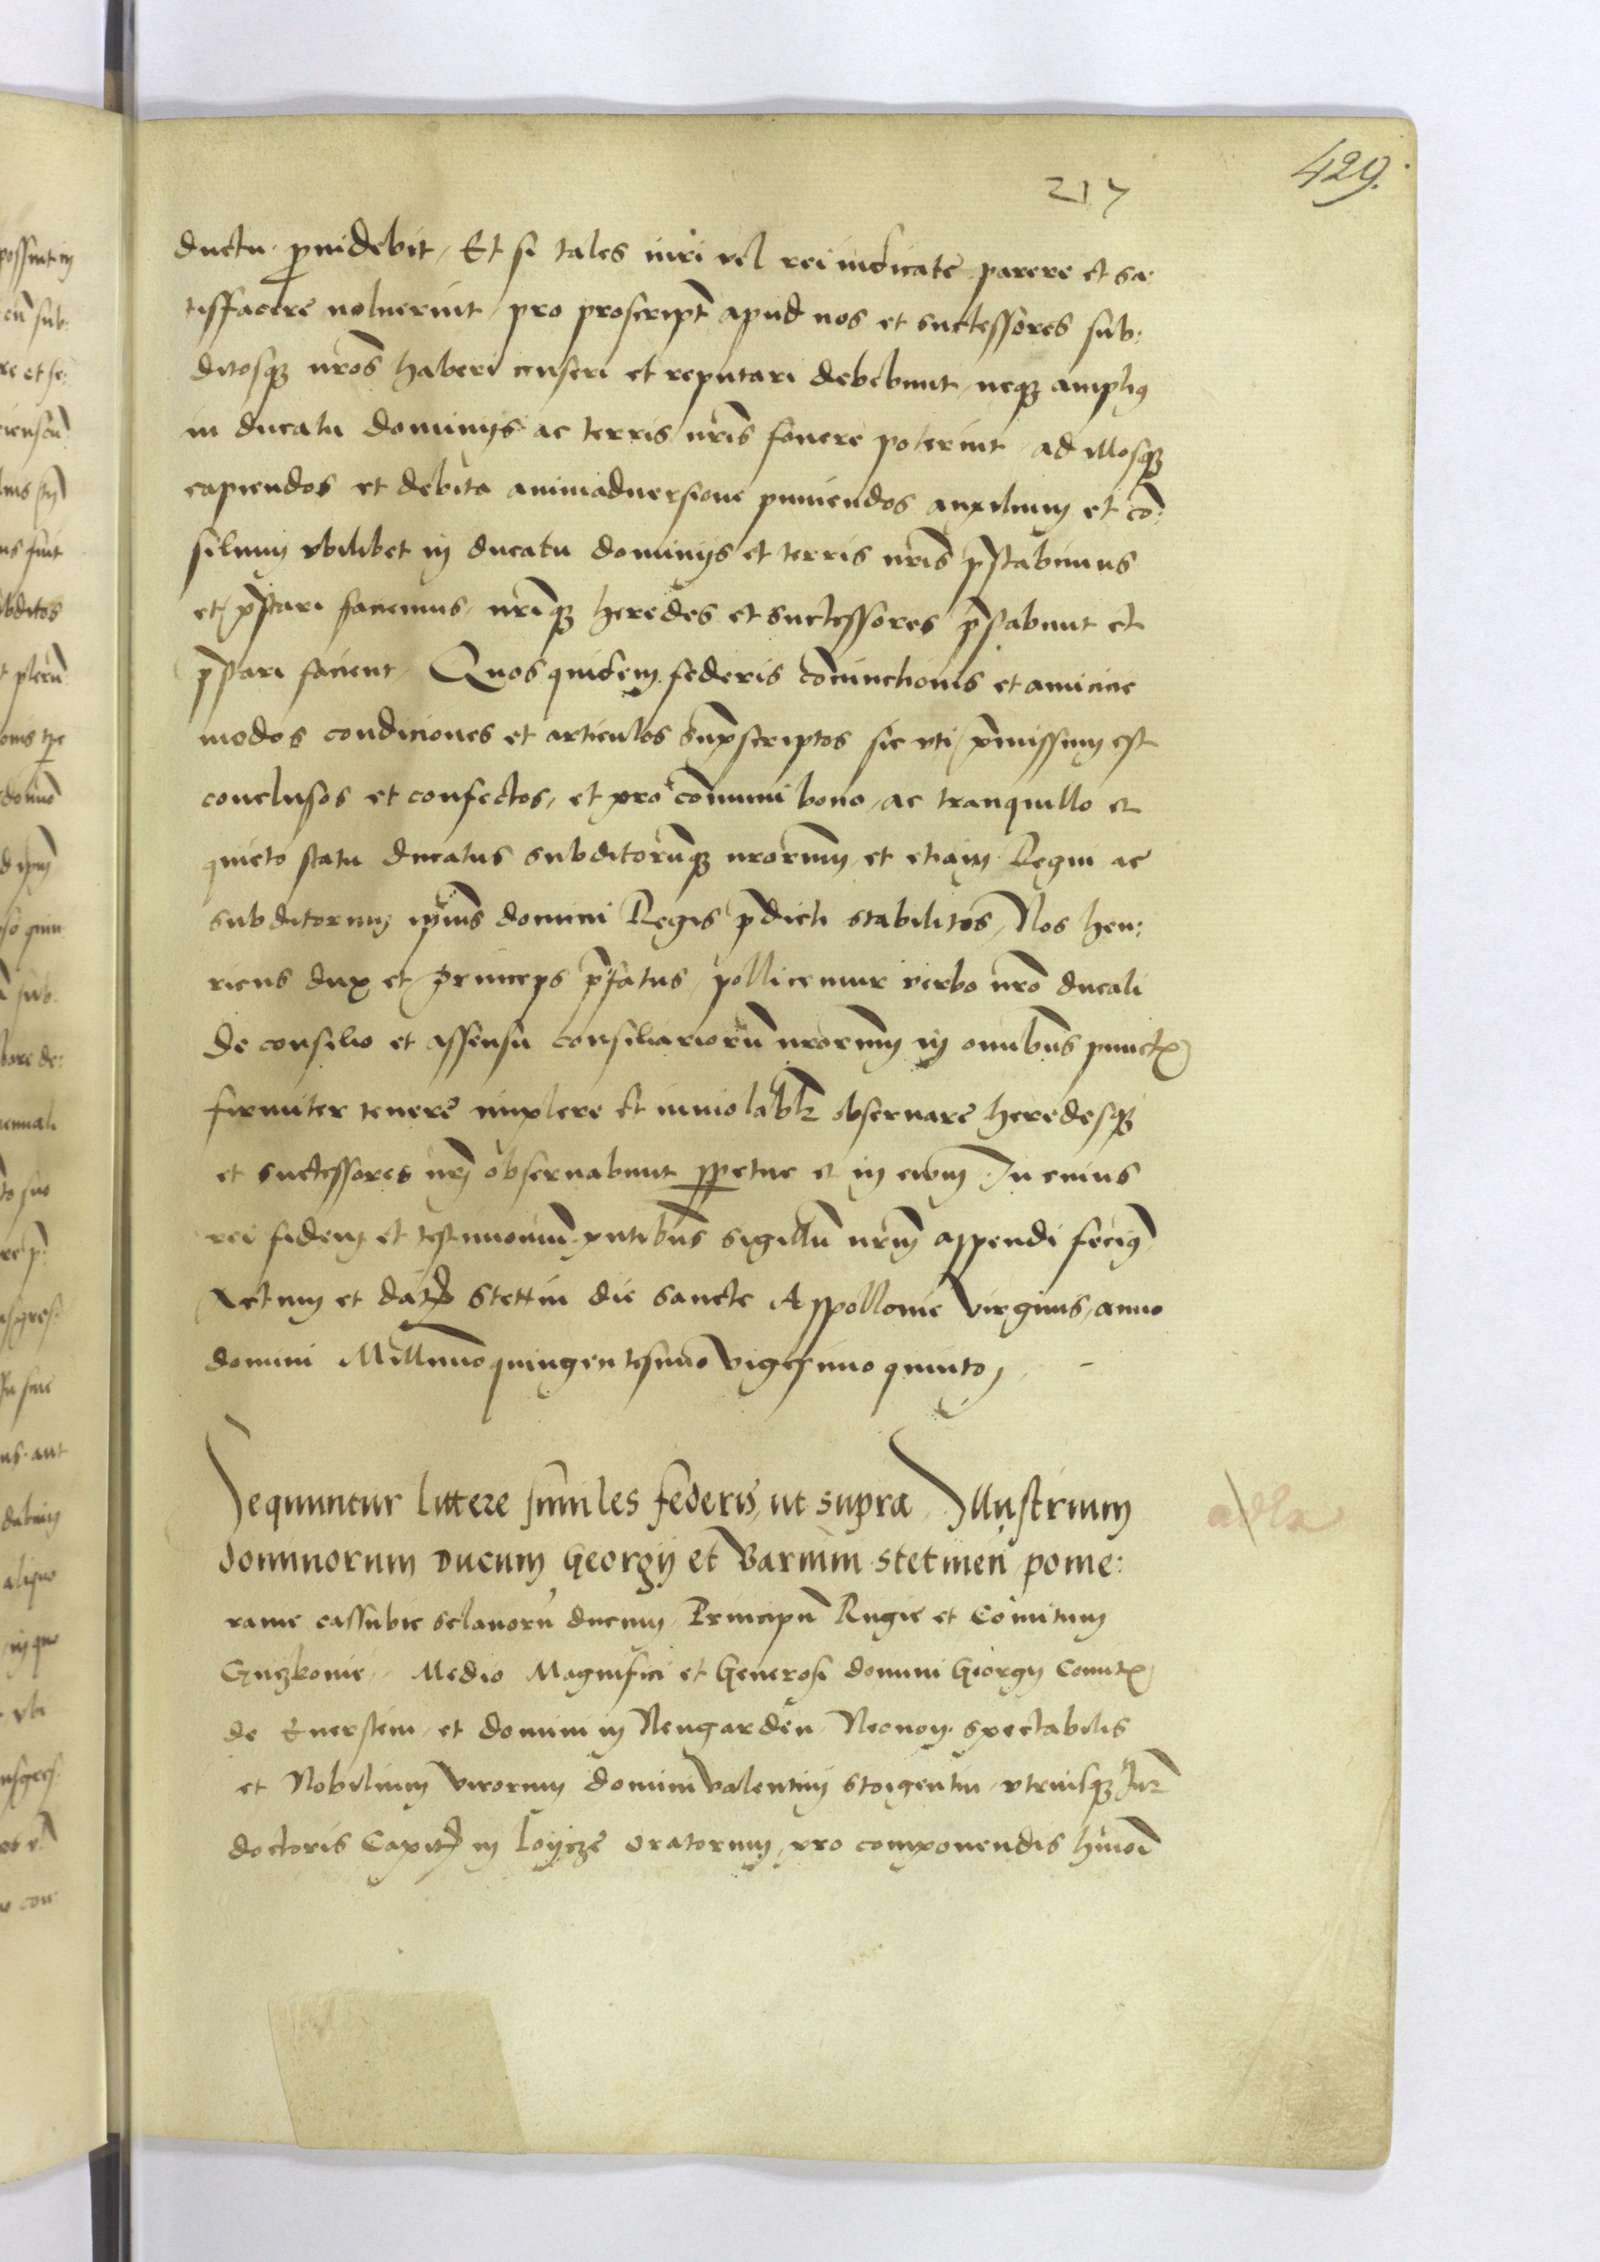 429.
217
ductu p̱uidebit, Et si tales iuri vel rei iudicate parere et sa-
tisffacere noluerint, pro proscript̃ apud nos et successores sub:
ditosqȝ nr̃os haberi censeri et reputari debebunt, neqȝ amplius
in ducatu dominijs ac terris nr̃is fouere poterint, ad illosqȝ
capiendos et debita animaduersione puniendos auxilium et cõ:
silium vbilibet in ducatu dominijs et terris nr̃is p̃stabimus
et p̃stari faciemus, nr̃iqȝ heredes et successores p̃stabunt et
p̃stari facient, Quos quidem federis cõiunctionis et amicicie
modos condiciones et articulos sup̃scriptos sic vti p̃missum est
conclusos et confectos, et pro cõmuni bono, ac tranquillo et
quieto statu ducatus subditorũqȝ nr̃orum, et etiam Regni ac
subditorum ip̃ius domini Regis p̃dicti stabilitos, Nos hen:
ricus dux et princeps p̃fatus, pollicemur verbo nr̃o ducali
de consilio et assensu consiliariorũ nr̃orum in om̃ibus punctis
firmiter tenere implere et inuiolabl̃r obseruare heredesqȝ
et successores nr̃j obseruabunt p̱petue et in ewm̃ In cuius
rei fidem et testimoniũ p̃ntibus sigillũ nr̃m appendi fecim9,
Actum et dat̃ Stettin die sancte Appollonie virginis, anno
domini Mill̃imo quingentesimo vigesimo quinto, -
Sequuntur littere similes federis, ut supra, Illustrium
dominorum Ducum Georgij et Barnim stetinen pome:
ranie cassubie sclauorũ ducum, Principũ Rugie et Comitum
Guczkonie, Medio Magnifici et Generosi domini Georgij Comitis
de Euerstein, et domini in Neugarden, Necnon spectabilis
et Nobilium virorum domini valentini stoigentin, vtriusqȝ Jur̃
doctoris Capit̃ in Loycze oratorum, pro componendis hm̃oi